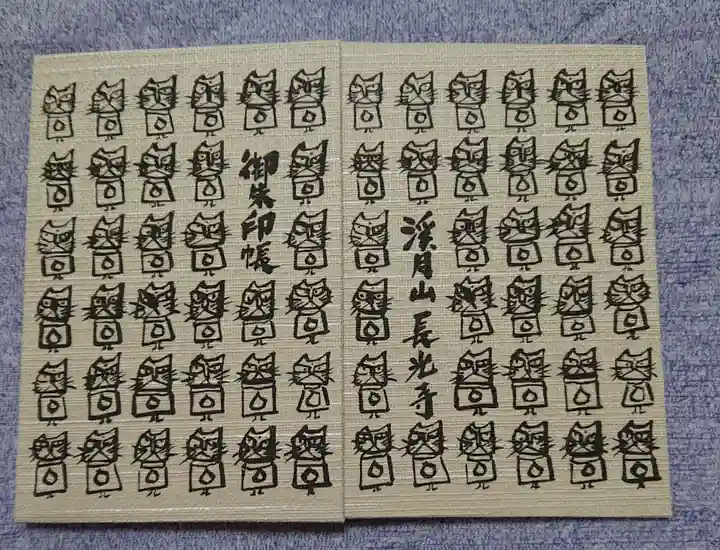 御朱印帳
渓月山長光寺